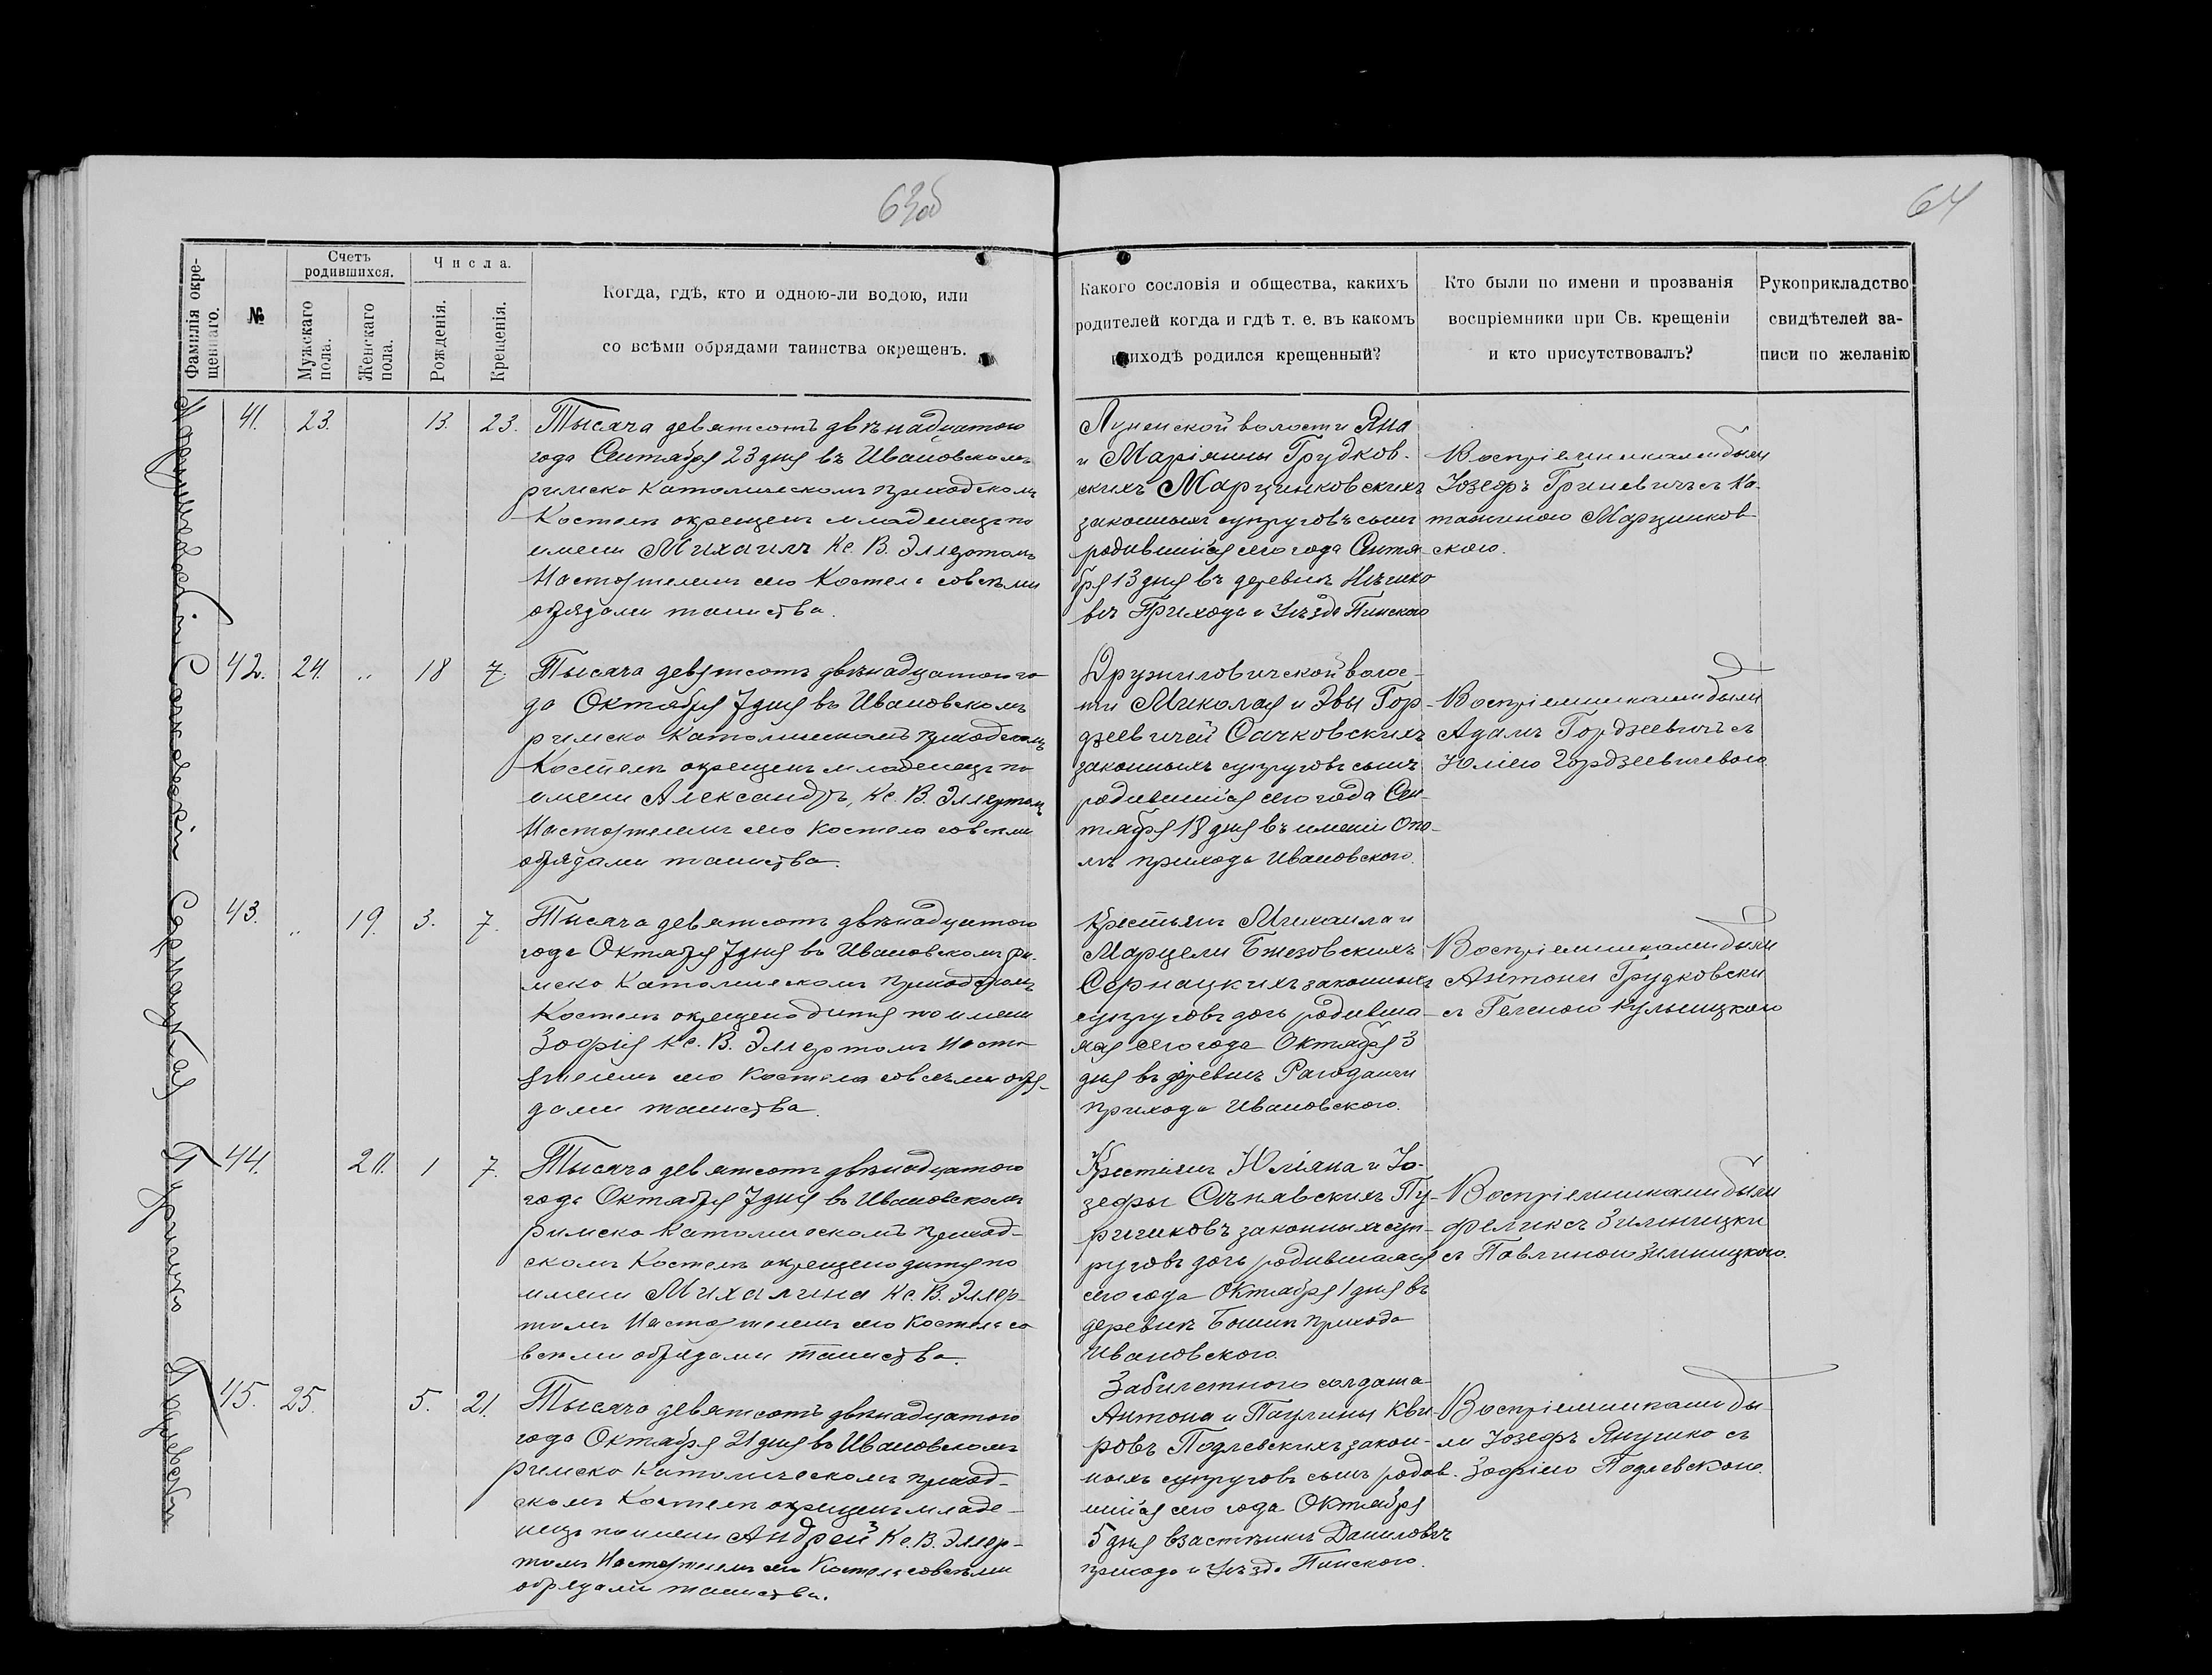 63об
64
Фамилія окре-
щеннаго.
№
Счетъ
родившихся.
Мужскаго
пола.
Женскаго
пола.
Числа.
Рожденія.
Крещенія.
Когда, гдѣ, кто и одною-ли водою, или
со всѣми обрядами таинства окрещенъ.
Какого сословія и общества, какихъ
родителей когда и гдѣ т. е. въ какомъ
приходѣ родился крещенный?
Кто были по имени и прозванія
воспріемники при Св. крещеніи
и кто присутствовалъ?
Рукоприкладство
свидѣтелей за-
писи по желанію
Марцинковскій
41. 23. 13. 23.
Тысяча девятсотъ двѣнадцатого
года Сентября 23 дня въ Ивановскомъ
римско Католическомъ приходскомъ
Костелѣ окрещенъ младенецъ по
имени Михаилъ Кс. В. Эллертомъ
Настоятелемъ сего Костела совсѣми
обрядами таинства.
волости Яна
и Маріянны Грудков-
скихъ Марцинковскихъ
законныхъ супруговъ сынъ
родившійся сего года Сентя-
бря 13 дня въ деревнѣ
Прихода и Уѣзда Пинского
Воспріемниками были
Юзефъ Гриневичъ съ Ка-
Марцинков-
ского.
Сачковскій
42. 24. „ 18 7.
Тысяча девятсотъ двѣнадцатого го-
да Октября 7 дня въ Ивановскомъ
римско Католическомъ приходскомъ
Костелѣ окрещенъ младенецъ по
имени Александръ, Кс. В. Эллертомъ
Настоятелемъ сего Костела совсѣми
обрядами таинства.
Дружиловичской волос-
ти Миколая и Эвы Гор-
дзеевичей Сачковскихъ
законныхъ супруговъ сынъ
родившійся сего года Сен-
тября 18 дня въ имѣніи Опо-
лѣ прихода Ивановского.
Воспріемниками были
Адамъ Гордзеевичъ съ
Юліею Гордзеевичевою.
Сернацкая
43. „ 19. 3. 7.
Тысяча девятсотъ двѣнадцатого
года Октября 7 дня въ Ивановскомъ ри-
мско Католическомъ приходскомъ
Костелѣ окрещено дитя по имени
Зофія Кс. В. Эллертомъ Насто-
ятелемъ сего Костела совсѣми обря-
дами таинства.
Крестьянъ Михаила и
Марцели Бжезовскихъ
Сернацкихъ законныхъ
супруговъ дочь родивша-
яся сего года Октября 3
дня въ деревнѣ
прихода Ивановского.
Воспріемниками были
Антони Грудковски
съ Геленою
Пуричко
44. 20. 1 7.
Тысяча девятсотъ двѣнадцатого
года Октября 7 дня въ Ивановскомъ
римско Католическомъ приход-
скомъ Костелѣ окрещено дитя по
имени Михалина Кс. В. Эллер-
томъ Настоятелемъ сего Костела со
всѣми обрядами таинства.
Крестіянъ Юліяна и Ю-
зефы
законныхъ суп-
руговъ дочь родившаяся
сего года Октября 1 дня въ
деревнѣ прихода
Ивановского.
Воспріемниками были
Феликсъ
съ Павлиною
Подлевскій
45. 25. 5. 21.
Тысяча девятсотъ двѣнадцатого
года Октября 21 дня въ Ивановскомъ
римско Католическомъ приход-
скомъ Костелѣ окрещенъ младе-
нецъ по имени Андрей Кс. В. Эллер-
томъ Настоятелемъ сего Костела совсѣми
обрядами таинства.
Забилетного солдата
Антона и Паулины Кви-
ровъ Подлевскихъ закон-
ныхъ супруговъ сынъ родив-
шійся сего года Октября
5 дня взастѣнкѣ Даниловѣ
прихода и Уѣзда Пинского.
Воспріемниками бы-
ли Юзефъ Янушко съ
Зофіею Подлевскою.